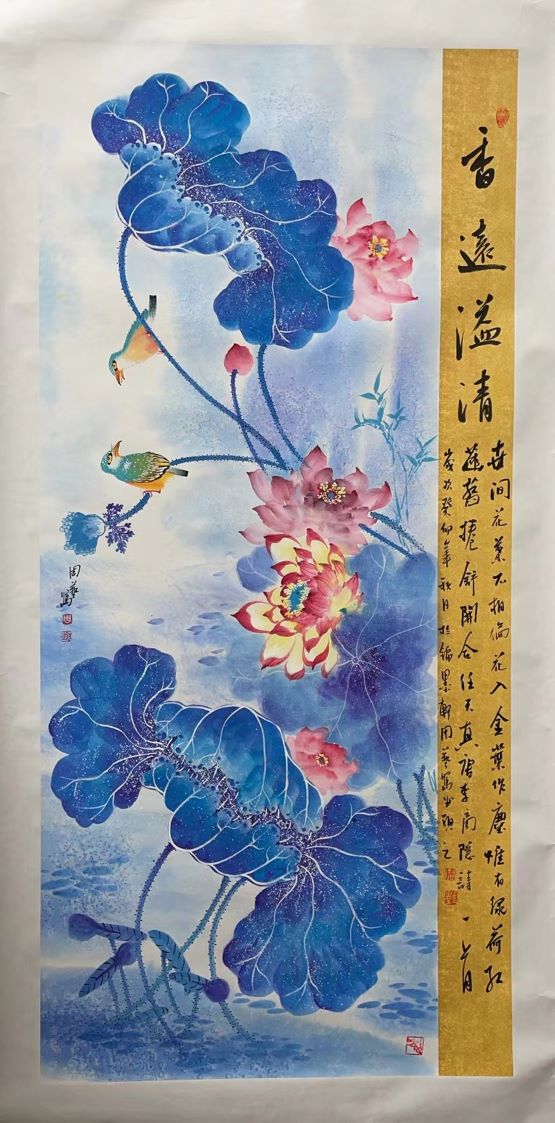 香遠溢清
世間花葉不相倫花入金葉作塵惟有綠荷紅
菡萏捲舒開合任天真唐李商隱詩一
歲次癸卯年秋月於墨軒周藝寫並題之
周藝寫